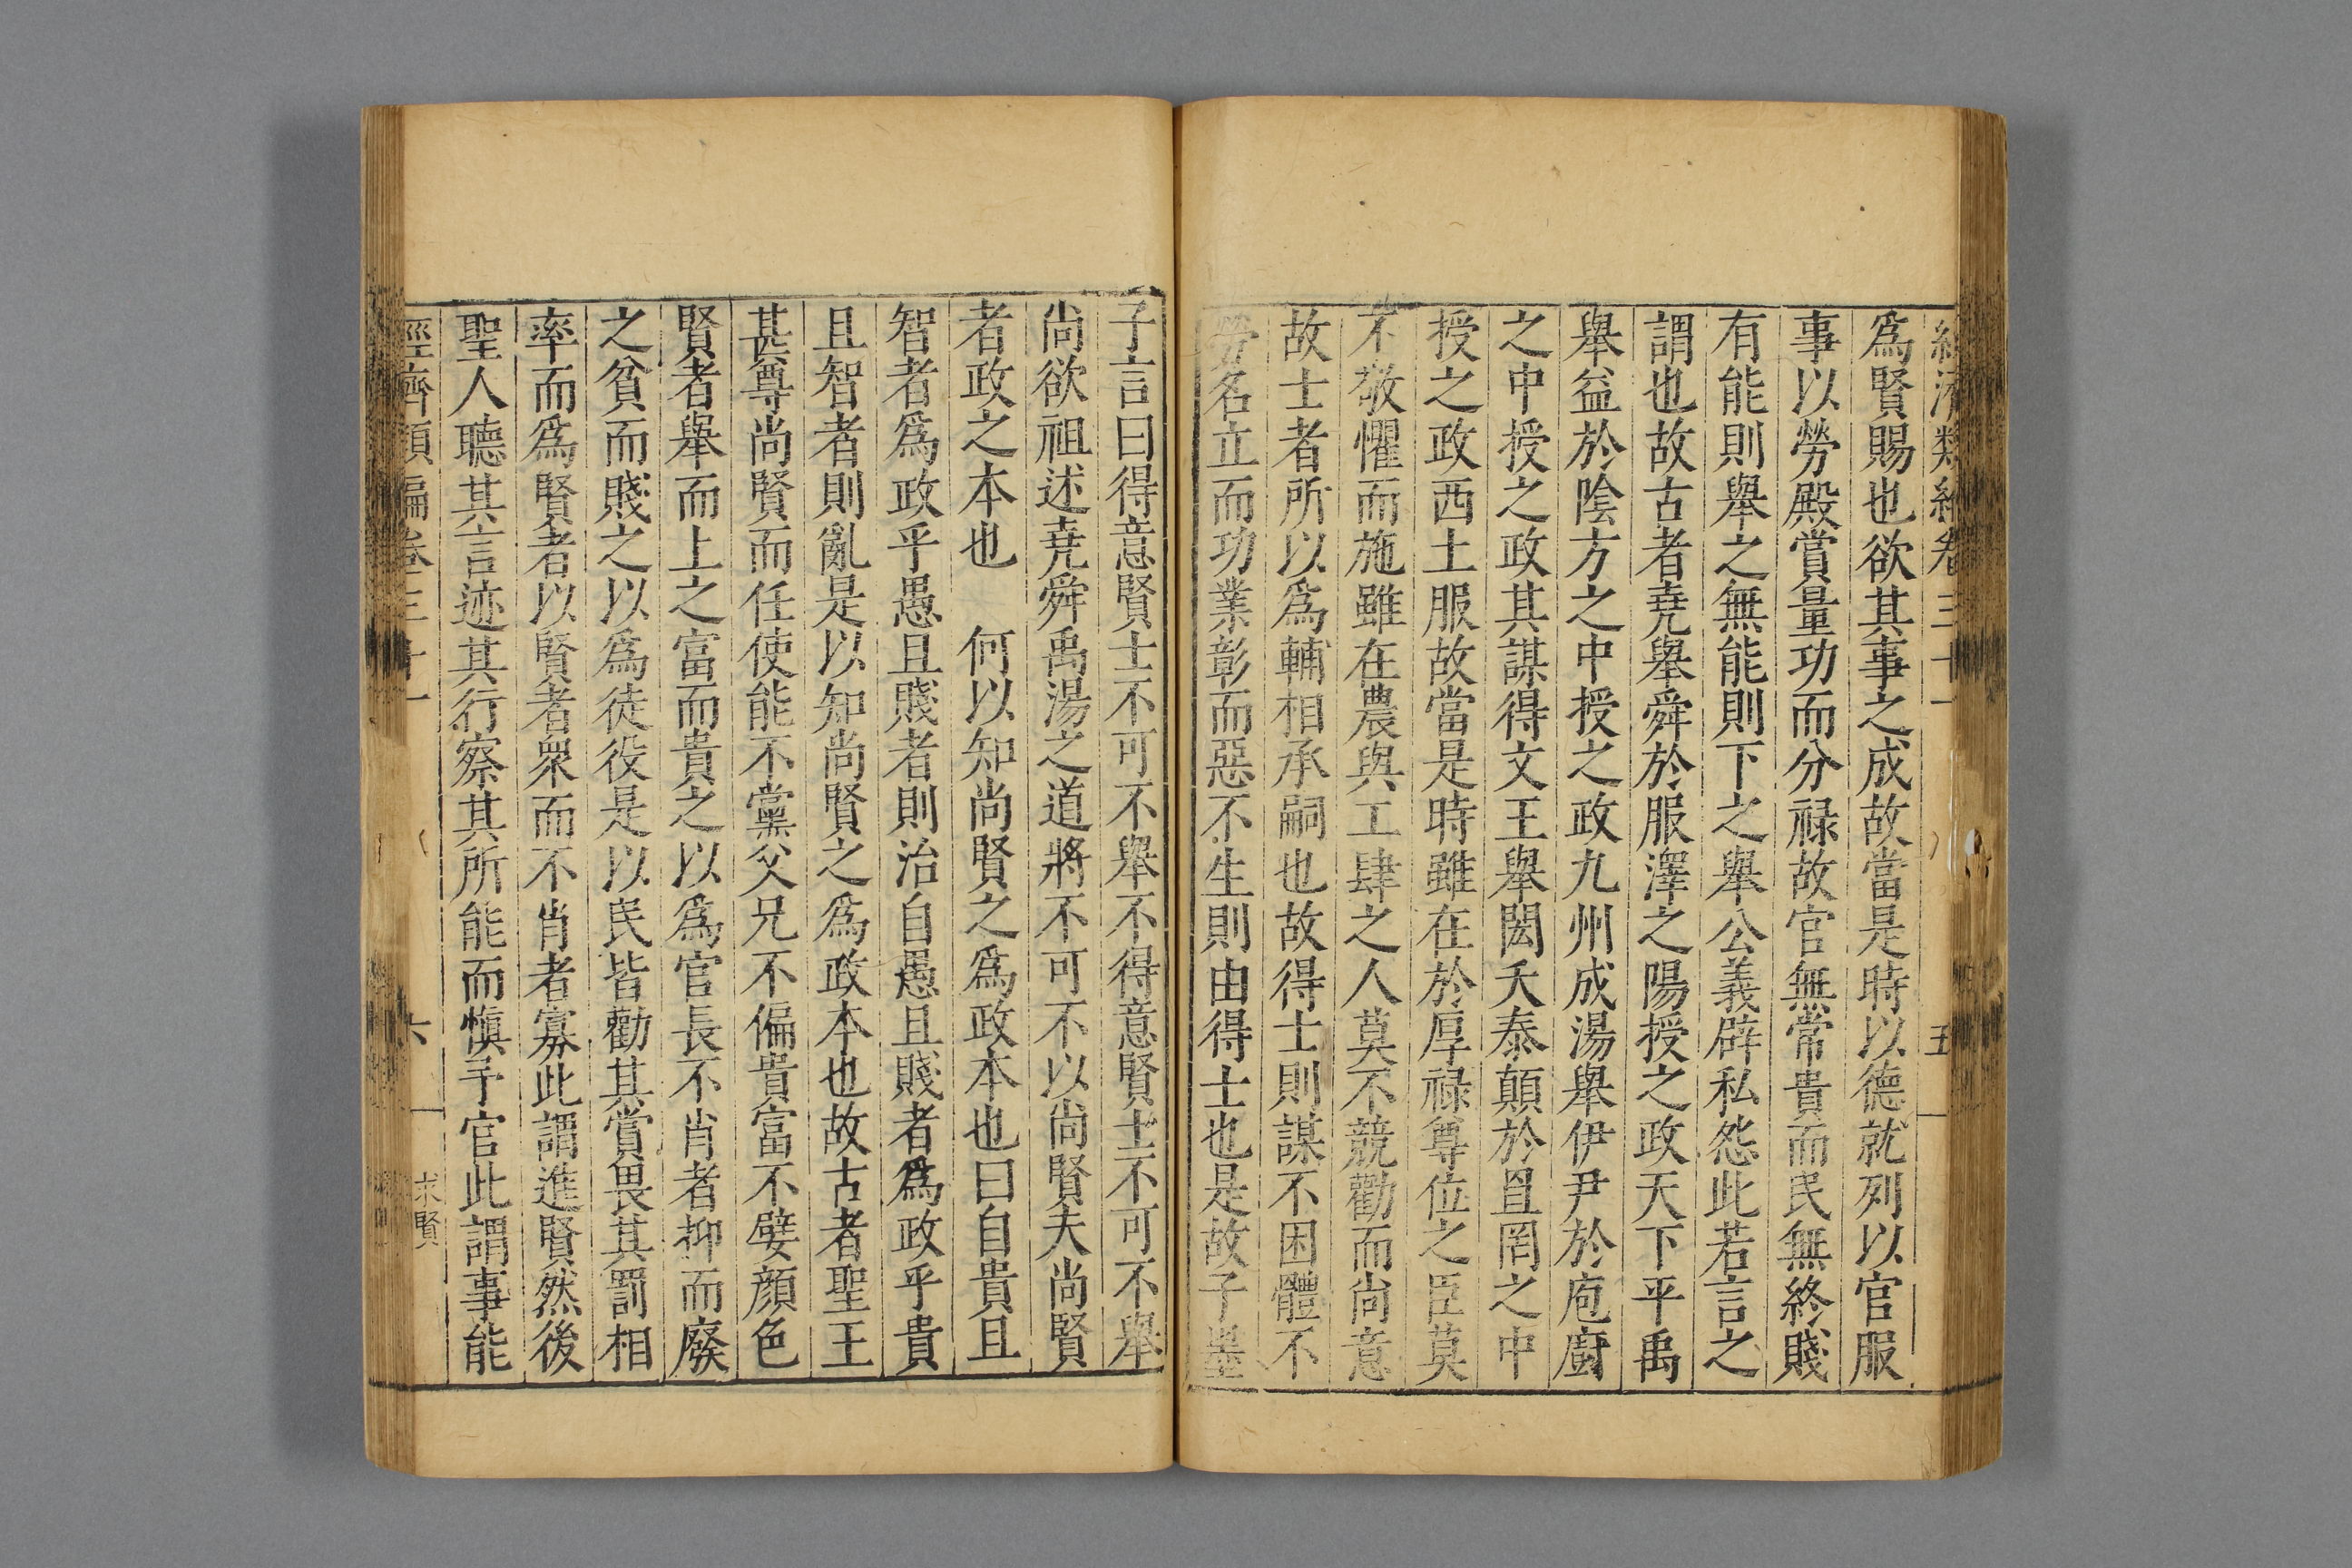 經濟類編卷三十一 五
爲賢賜也欲其事之成故當是時以德就列以官服
事以勞殿賞量功而分祿故官無常貴而民無終賤
有能則舉之無能則下之舉公義辟私怨此若言之
謂也故古者堯舉舜於服澤之陽授之政天下平禹
舉益於陰方之中授之政九州成湯舉伊尹於庖廚
之中授之政其謀得文王舉閎夭泰顛於罝罔之中
授之政西土服故當是時雖在於厚祿尊位之臣莫
不敬懼而施雖在農與工肆之人莫不競勸而尚意
故士者所以爲輔相承嗣也故得士則謀不困體不
勞名立而功業彰而惡不生則由得士也是故子墨
子言曰得意賢士不可不舉不得意賢士不可不舉
尚欲祖述堯舜禹湯之道將不可不以尚賢夫尚賢
者政之本也 何以知尚賢之爲政本也曰自貴且
智者爲政乎愚且賤者則治自愚且賤者爲政乎貴
且智者則亂是以知尚賢之爲政本也故古者聖王
甚尊尚賢而任使能不黨父兄不偏貴富不嬖顏色
賢者舉而上之富而貴之以爲官長不肖者抑而廢
之貧而賤之以爲徒役是以民皆勸其賞畏其罰相
率而爲賢者以賢者衆而不肖者寡此謂進賢然後
聖人聽其言迹其行察其所能而慎予官此謂事能
經濟類編卷三十一 六 求賢